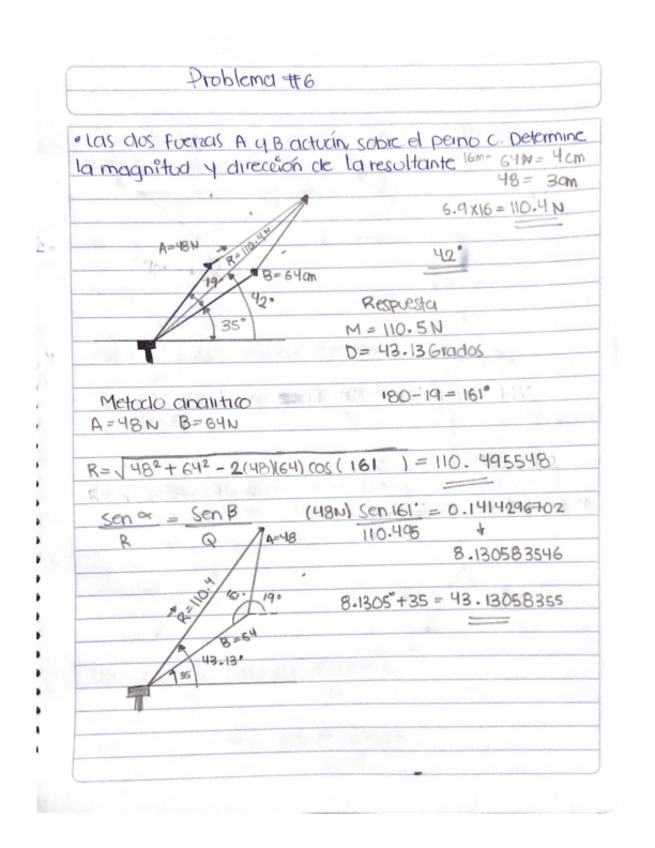 Problema #6
• Las dos fuerzas A y B actúan sobre el perno C. Determine
la magnitud y dirección de la resultante
64N = 4cm
48 = 3cm
6.9 x 16 = 110.4 N
42°
A=48N
R=110.4N
B=64cm
19
42°
35°
Respuesta
M = 110.5 N
D= 43.13 Grados
Metodo analitico
A=48N B=64N
180-19 = 161°
R= √48² + 64² - 2(48)(64) cos ( 161 ) = 110.495548
Sen α / R = Sen β / Q
(48N) Sen 161° / 110.495 = 0.1414296702
↓
8.130583546
8.1305° + 35 = 43.13058355
A=48
R=110.4
19°
B=64
43.13°
35